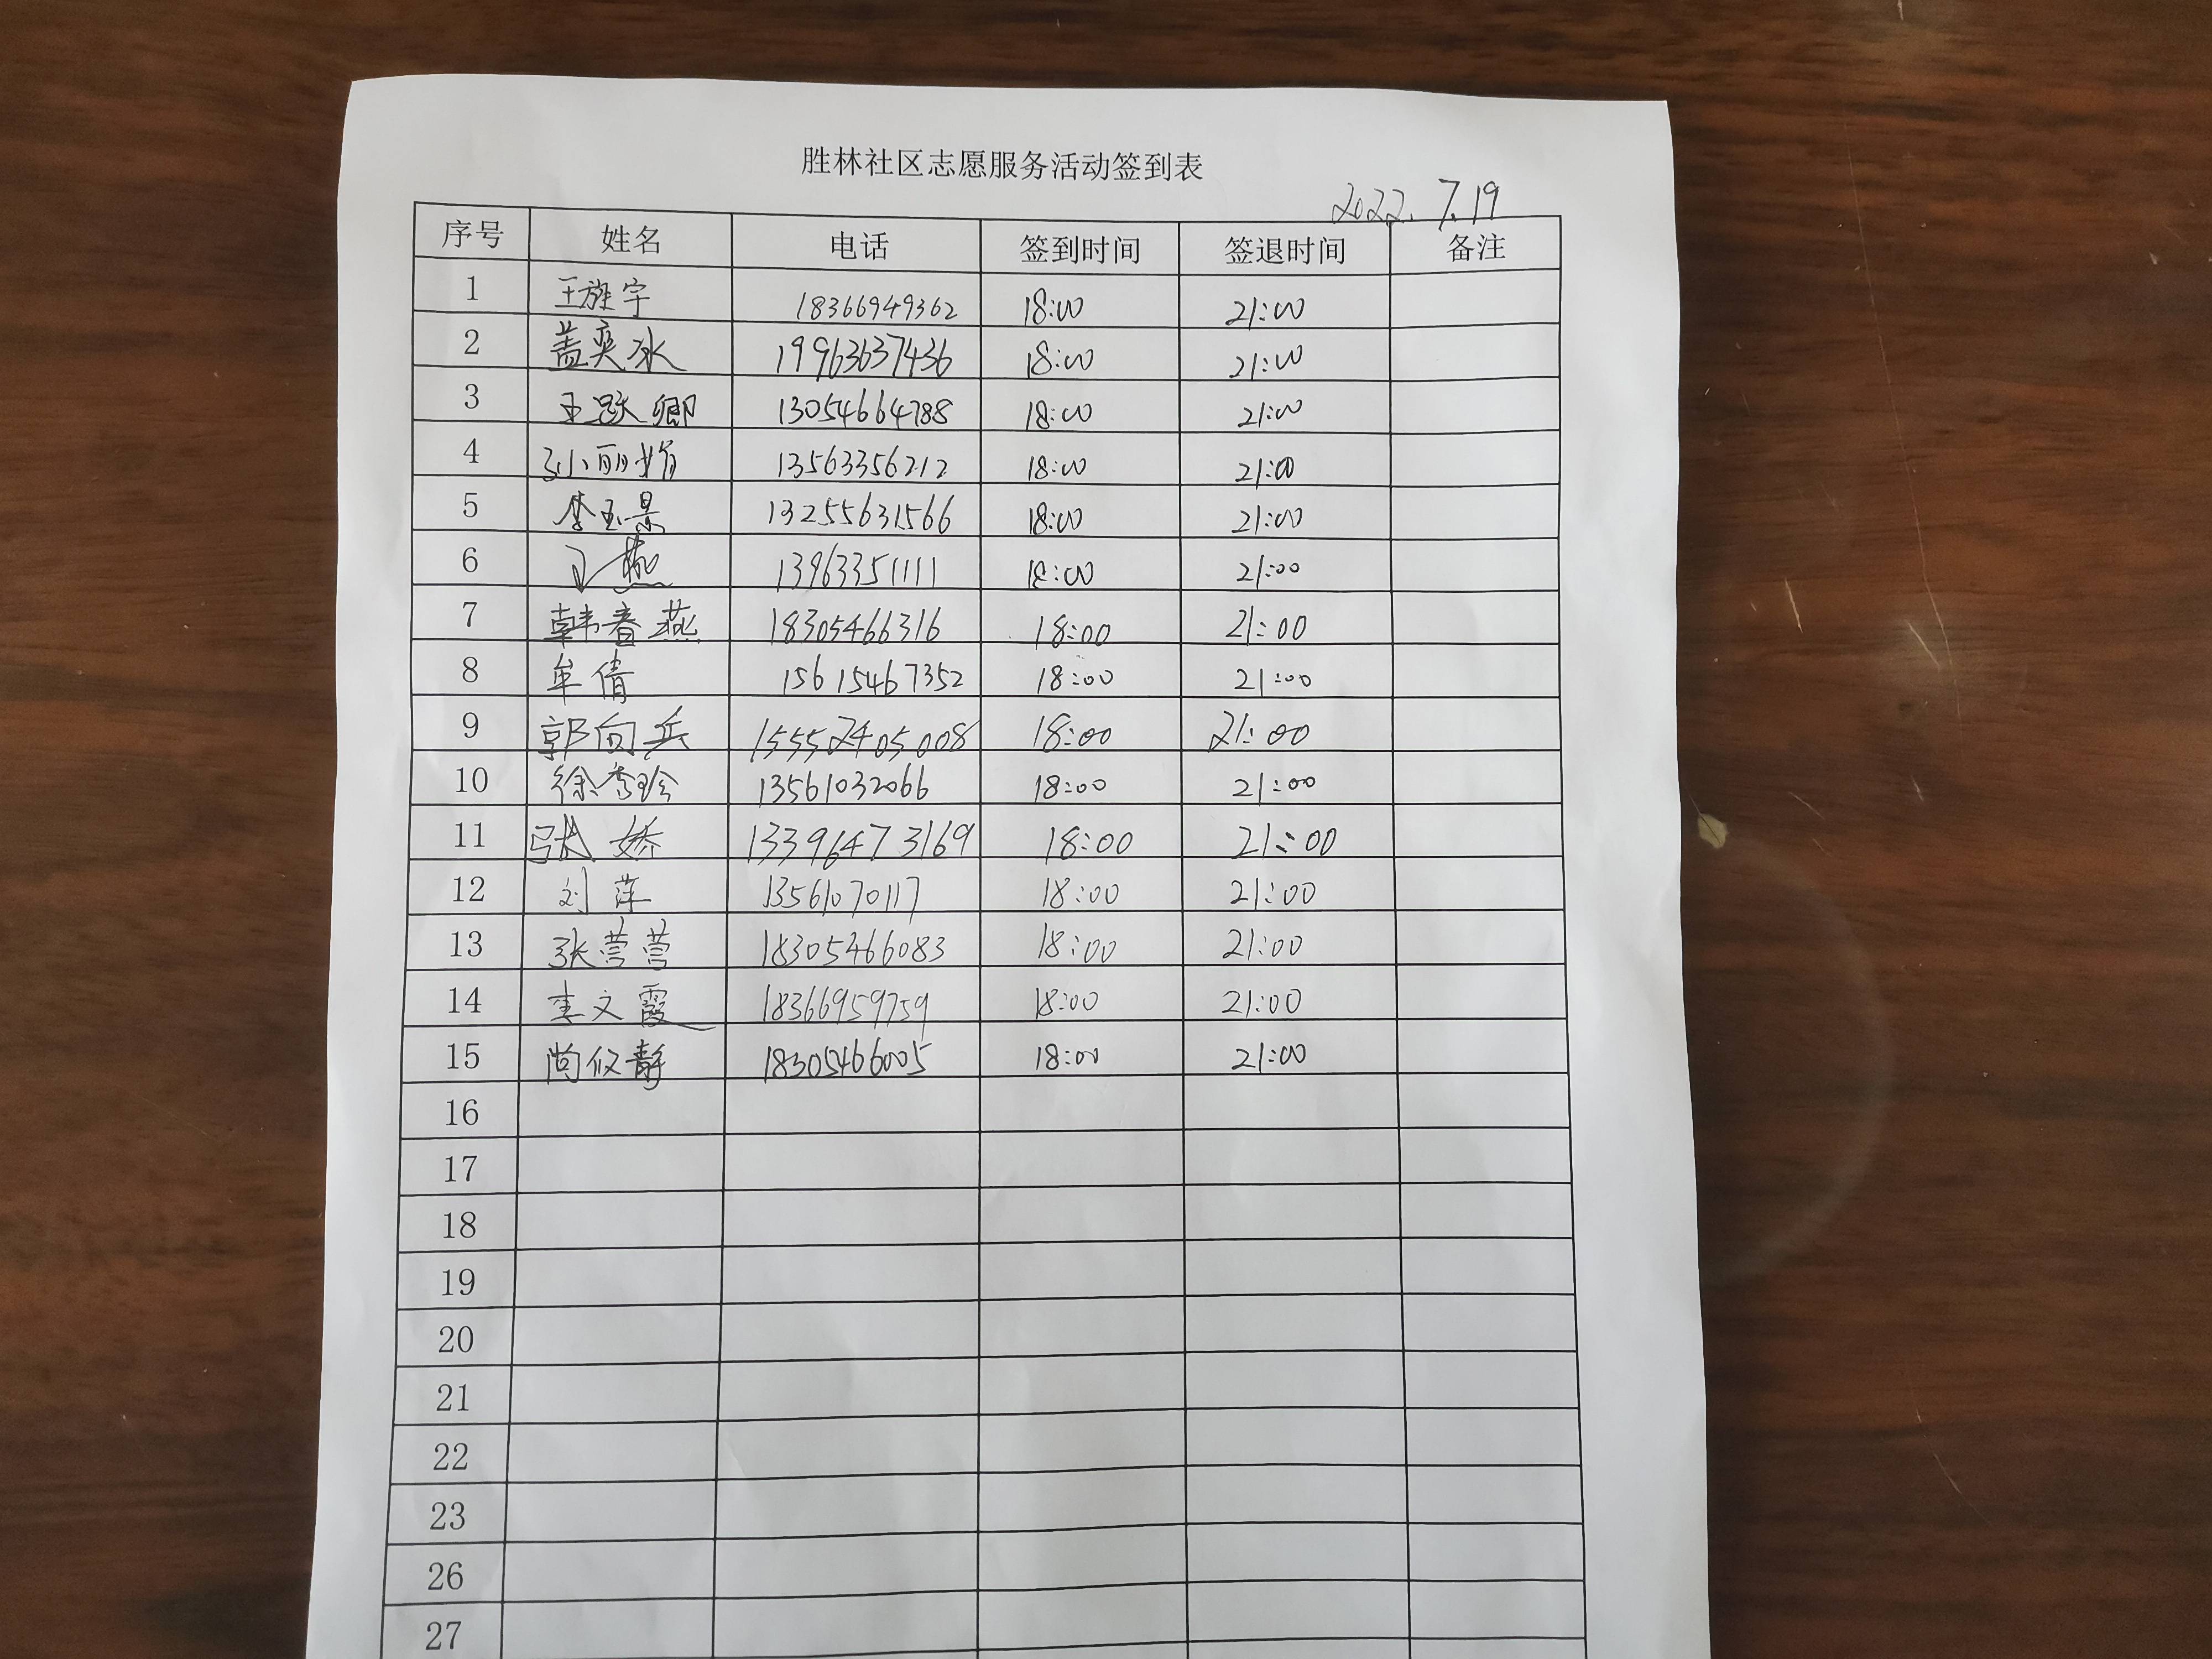 胜林社区志愿服务活动签到表
2022.7.19
序号 姓名 电话 签到时间 签退时间 备注
1 王旌宇 18366949362 18:00 21:00
2 盖奕冰 19963637436 18:00 21:00
3 王跃卿 13054664788 18:00 21:00
4 孙丽娟 13563356212 18:00 21:00
5 李玉景 13255631566 18:00 21:00
6 燕 13963351111 18:00 21:00
7 韩春燕 18305466316 18:00 21:00
8 牟倩 15615467352 18:00 21:00
9 郭向兵 15552405008 18:00 21:00
10 徐秀珍 13561032066 18:00 21:00
11 张娇 13396473169 18:00 21:00
12 刘萍 13561070117 18:00 21:00
13 张营营 18305466083 18:00 21:00
14 李文霞 18366959759 18:00 21:00
15 尚静 18305466005 18:00 21:00
16
17
18
19
20
21
22
23
26
27